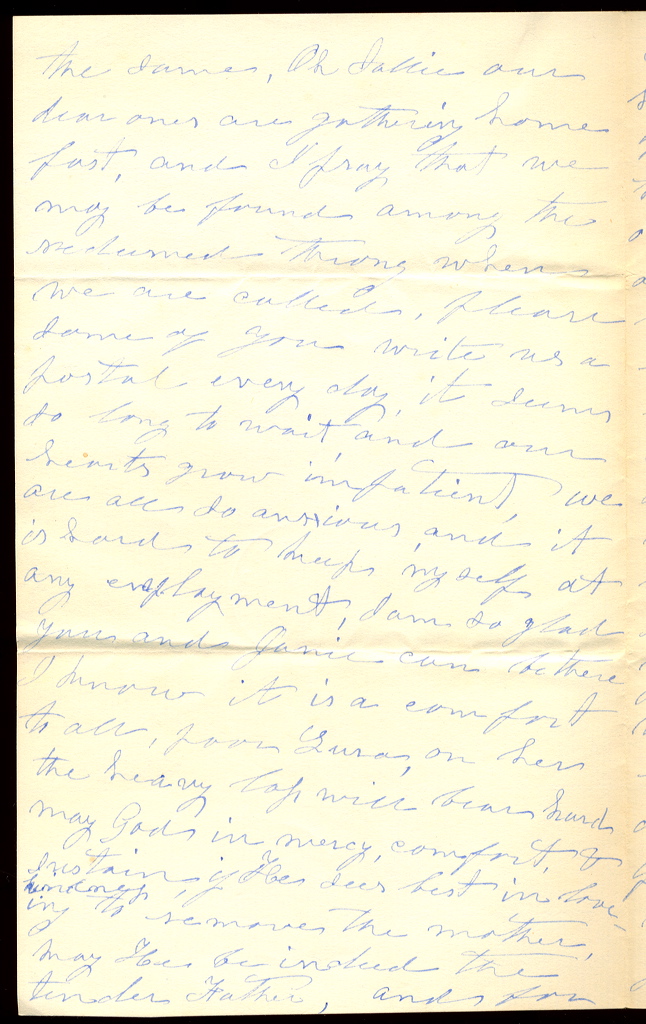 the same, Oh Sallie our
dear ones are gathering home
fast, and I pray that we
may be found among the
redeemed throng when
we are called, please
some of you write us a
postal every day, it seems
so long to wait and our
hearts grow impatient, we
are all so anxious and it
is hard to keep myself at
any employment, I am so glad
you and Janie can be there
I know it is a comfort
to all, poor Lura, on her
the heavy loss will bear hard
may God in mercy, comfort, &
sustain, if He sees best in lov-
kindness
ing to remove the mother,
may He be indeed the
tender Father, and for